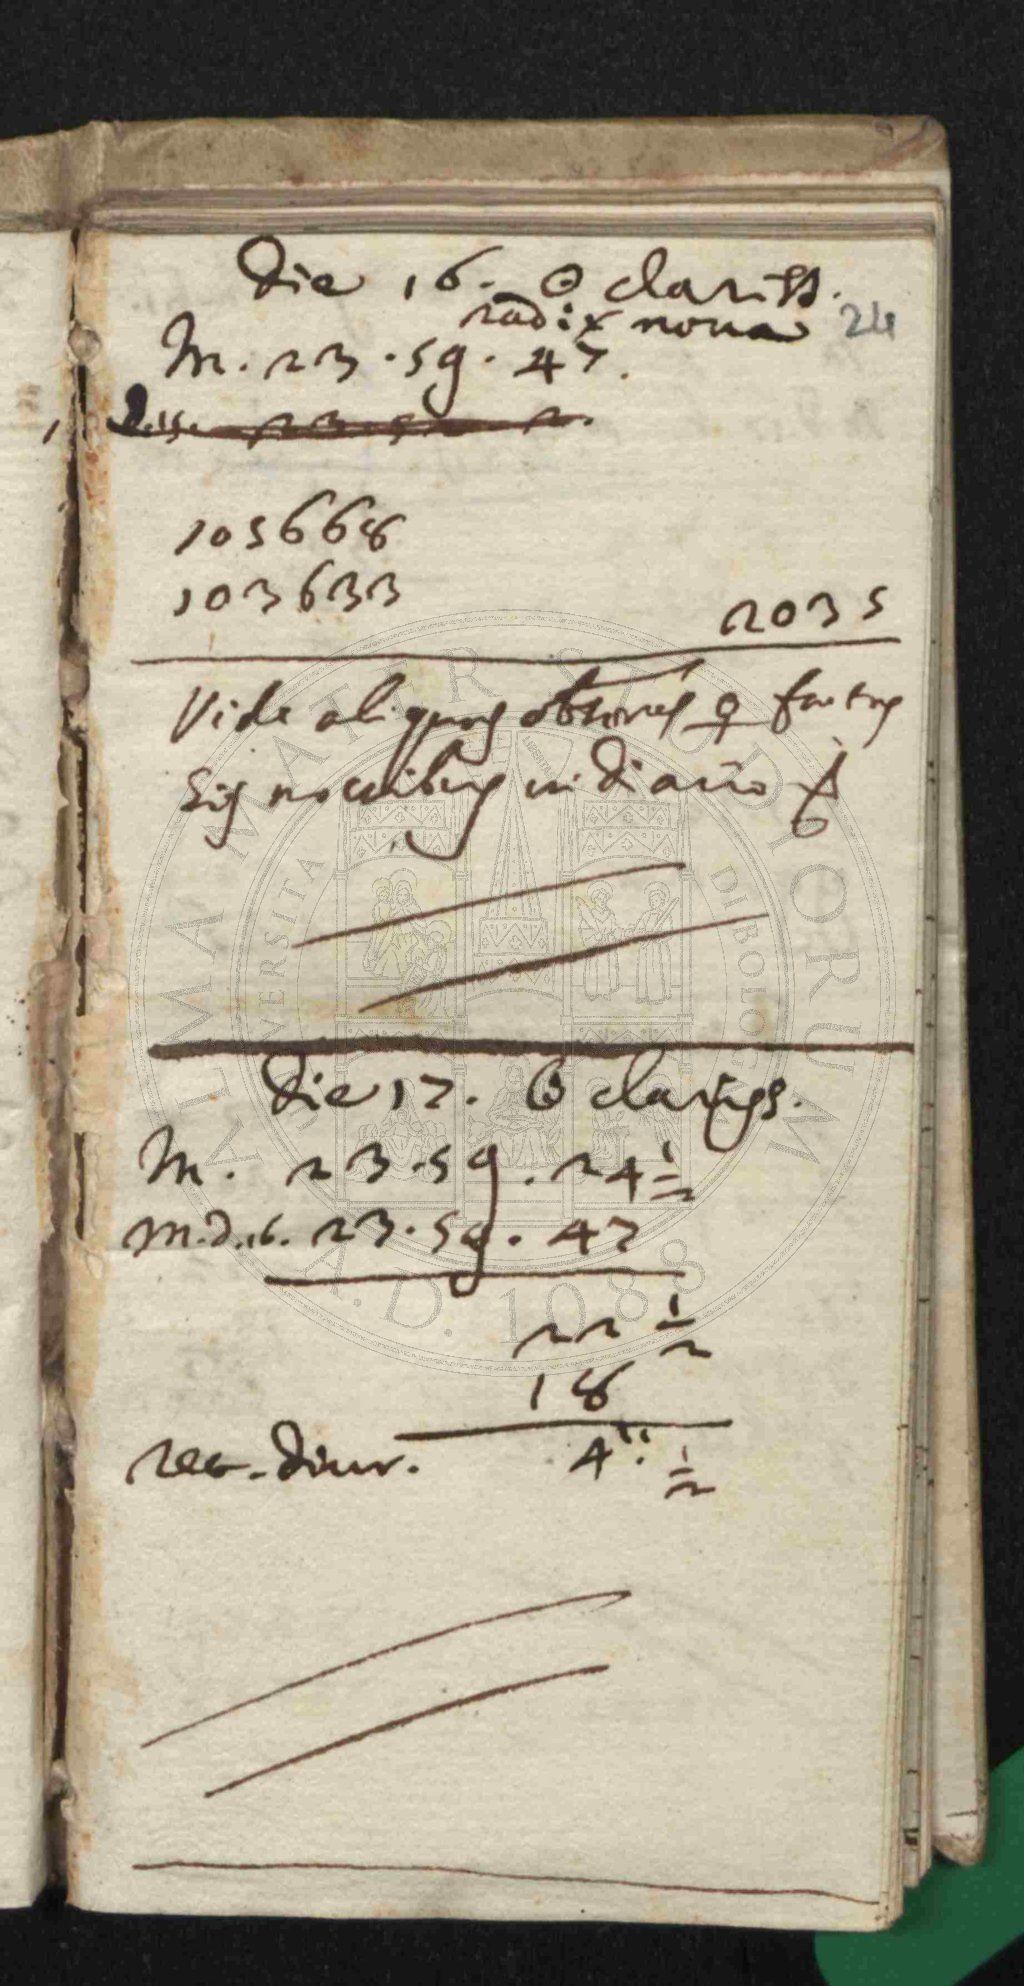 Die 16. ☉ clariss.
radix noua 24
M. 23. 59. 47.
105668
103633
2035
Vide aliquas obserues ♀ factas
his noctibus in diario
Die 17. ☉ clariss.
M. 23. 59. 24 1/2
M. D. 16. 23. 59. 47
22 1/2
18
ret. Diur. 4'' 1/2
ALMA MATER STUDIORUM
UNIVERSITA DI BOLOGNA
A.D. 1088